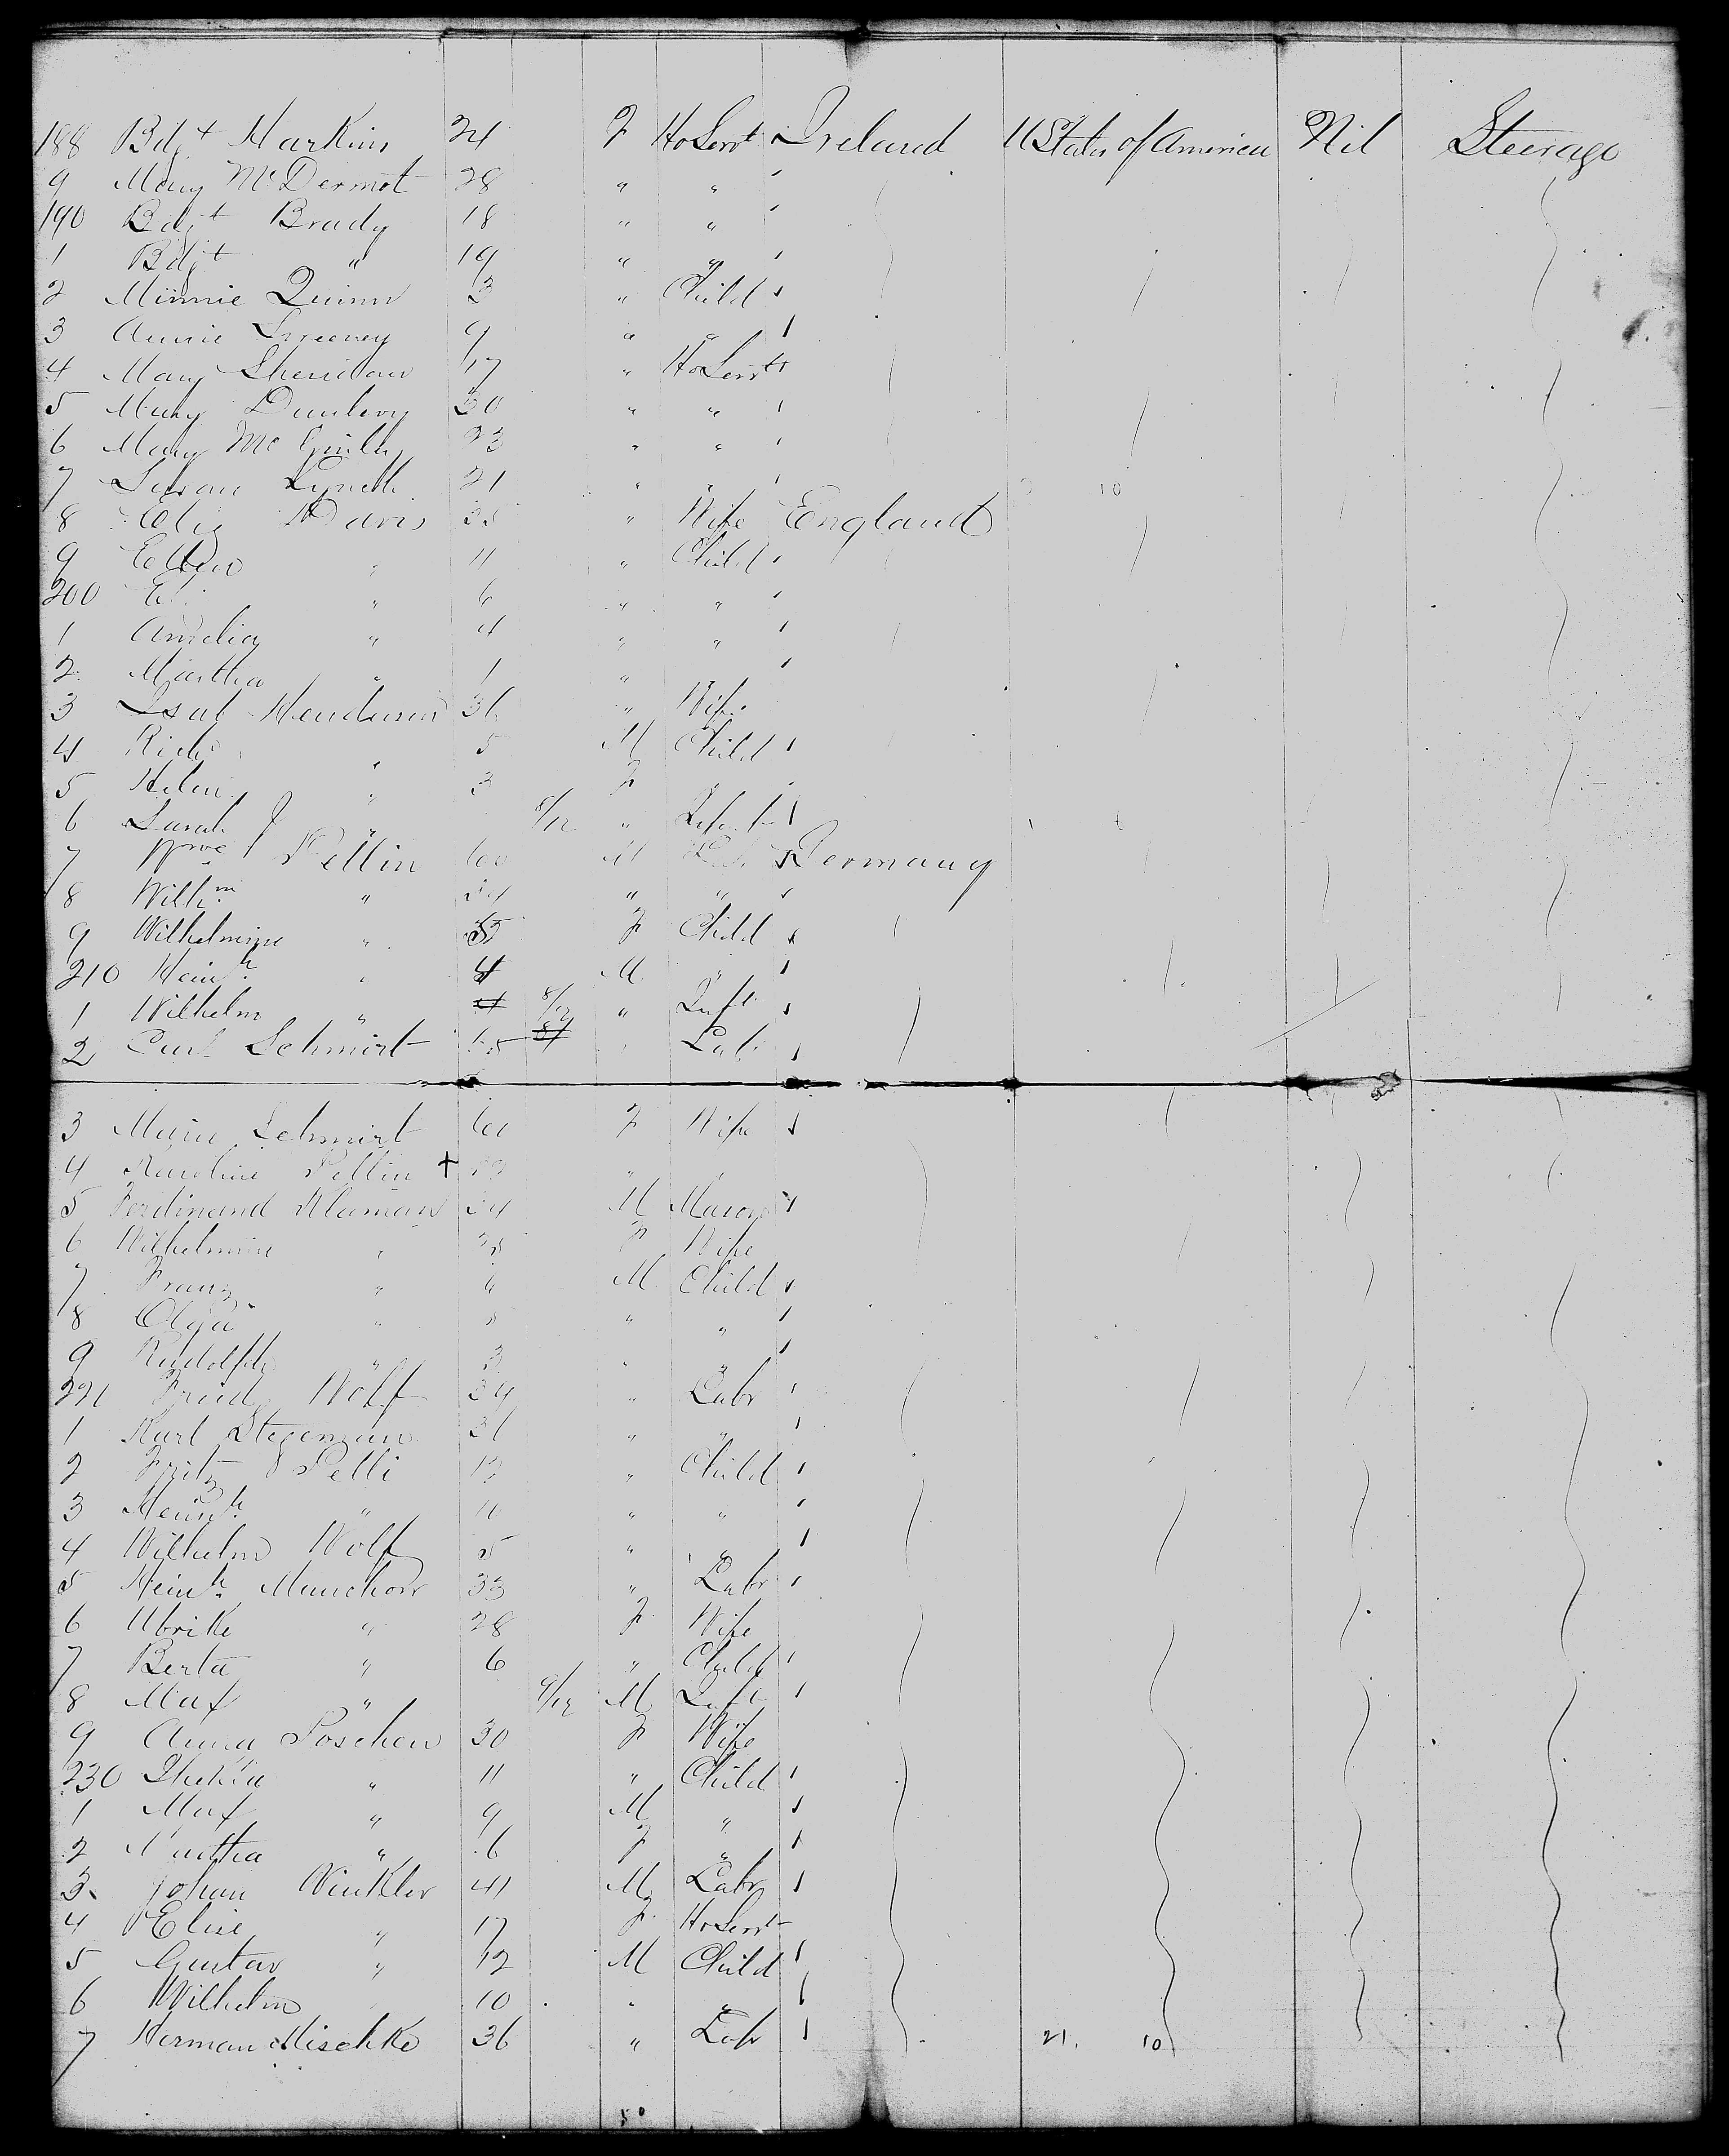 188 Bdgt Harkins 24 F HoServt Ireland U States of America Nil Steerage
9 Mary McDermot 28 " " '
190 Bdgt Brady 18 " " '
1 Bdgt " 19 " " '
2 Minnie Quinn 3 " Child
3 Annie Sweeney 9 " "
4 Mary Sheridan 17 " HoServt
5 Mary Dunlevy 30 " "
6 Mary McGinley 23 " "
7 Susan Lynch 21 " " 10
8 Eliz Davis 35 " Wife England
9 Ellen " 11 " Child
200 " 6 " "
1 Amelia " 4 " "
2 Martha " 1 "
3 Isab Henderson 36 " Wife
4 Richd " 5 M Child
5 Helen " 3 F "
6 Sarah J " 8/12 " Infant
7 Pellin 60 M Germany
8 Wilhm " " "
9 Wilhelmine " 5 F Child
210 Heinh " 4 M "
1 Wilhelm " 8/12 " Inft
2 Carl Schmirt " Labr
3 Marie Schmirt 60 F Wife
4 Karoline Pellin + "
5 Ferdinand Klaman 34 M Mason
6 Wilhelmine " F Wife
7 Franz " M Child
8 Olga " " "
9 Rudolph " 3 " "
221 Fried Wolf " Labr
1 Karl Stegeman 31 " "
2 Fritz Pelli 13 " Child
3 Heinh " 10 " "
4 Wilhelm Wolf 5 " "
5 Heinh Manchow 33 " Labr
6 Ulrike " 28 F Wife
7 Berta " 6 " Child
8 Max " 9/12 M Inft
9 Anna Poschen 30 F Wife
230 Thekla " 11 " Child
1 Max " 9 M "
2 Martha " 6 F "
3 Johan Winkler 41 M Labr
4 Elise " 17 F HoServt
5 Gustav " 12 M Child
6 Wilhelm 10 " "
7 Herman Mischke 36 " Labr 21. 10
50